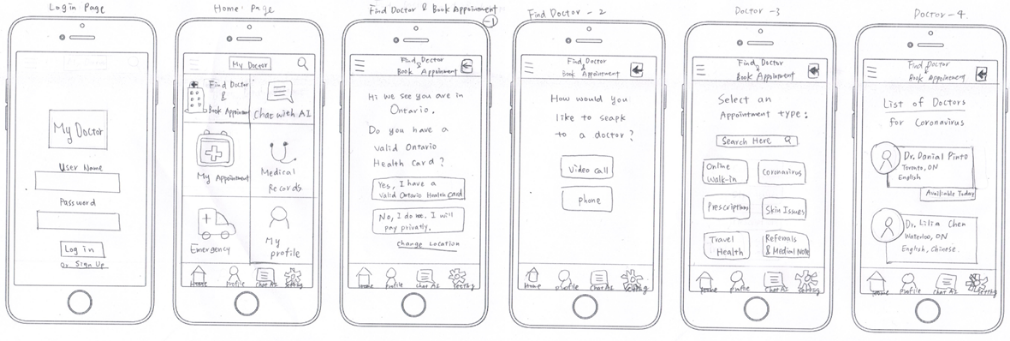 Login Page
My Doctor
User Name
Password
Log in
Or Sign Up
Home Page
My Doctor
Find Doctor
&
Book Appoinment
Chat with AI
My Appoinment
Medical
Records
Emergency
My
profile
Home
Profile
Chat AI
Setting
Find Doctor & Book Appoinment
-1
Find Doctor
&
Book Appoinment
Hi we see you are in
Ontario.
Do you have a
valid Ontario
Health Card?
Yes, I have a
valid Ontario Health card
No, I do not. I will
pay privatly.
Change Location
Home
Profile
Chat AI
Setting
Find Doctor - 2
Find Doctor
&
Book Appoinment
How would you
like to seapk
to a doctor?
Video call
phone
Home
Profile
Chat AI
Setting
Doctor - 3
Find Doctor
&
Book Appoinment
Select an
Appointment type:
Search Here
Online
Walk-in
Coronavirus
Prescription
Skin Issues
Travel
Health
Referrals
& Medical Note
Home
Profile
Chat AI
Setting
Doctor - 4
Find Doctor
&
Book Appoinment
List of Doctors
for Coronavirus
Dr. Danial Pinto
Toronto, ON
English
Available Today
Dr. Lilia Chen
Waterloo, ON
English, Chinese.
Home
Profile
Chat AI
Setting